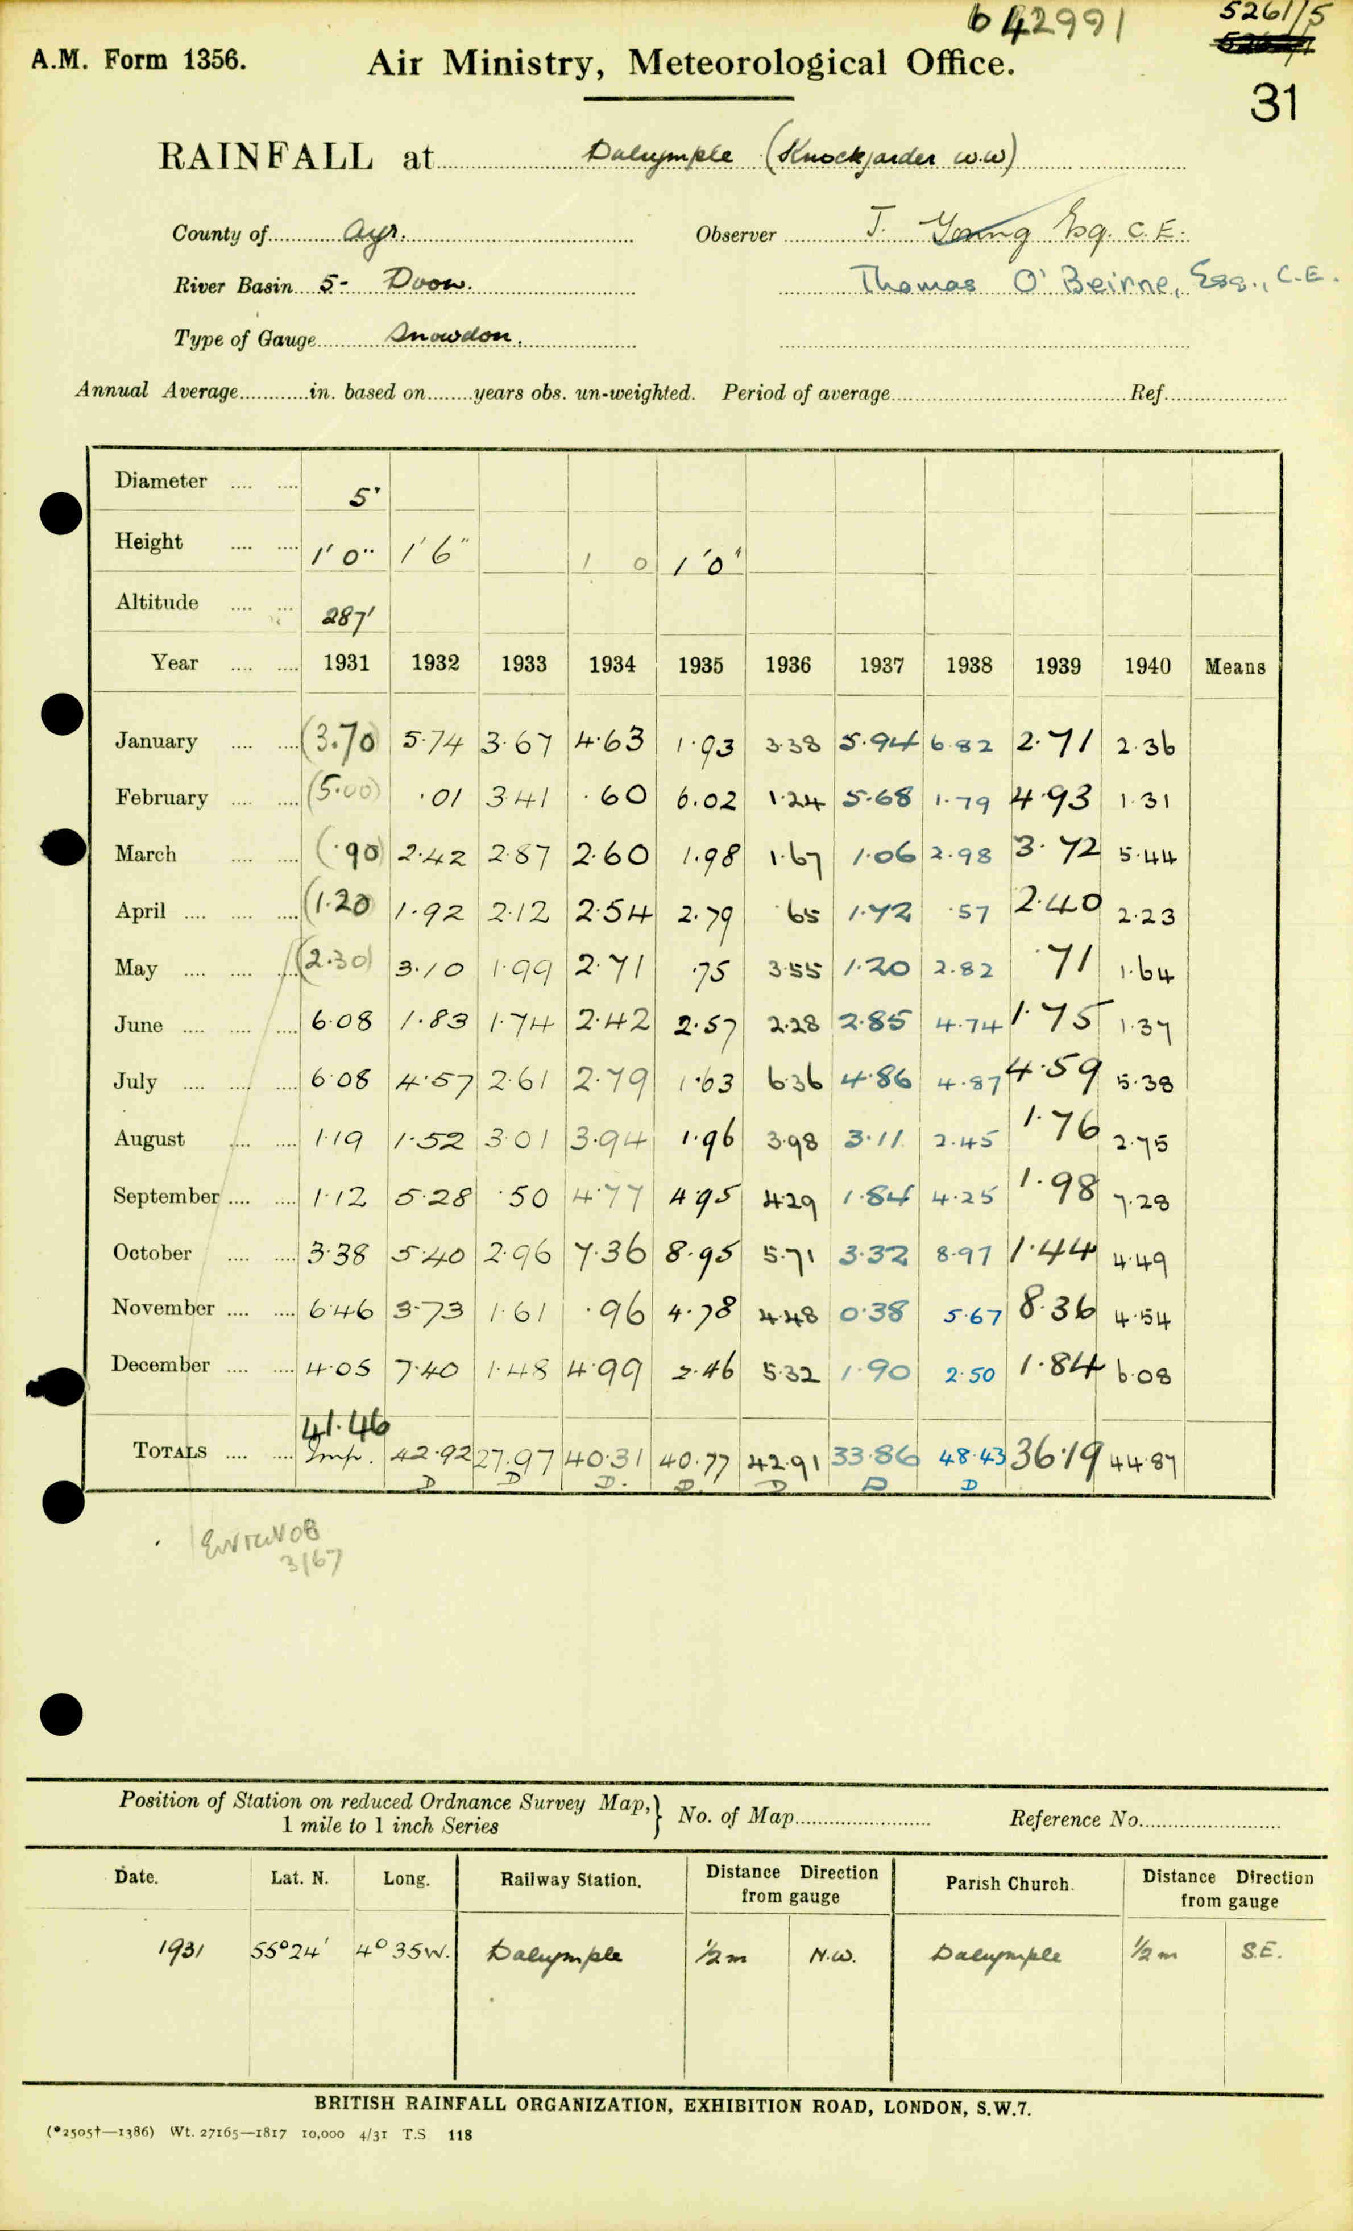 642991
5261/5
31
A.M. Form 1356. Air Ministry, Meteorological Office.
RAINFALL at Dalrymple (Knockjarder W.W)
County of Ayr. Observer J. Young Esq. C.E.
River Basin 5- Doon. Thomas O'Beirne, Esq., C.E.
Type of Gauge Snowdon.
Annual Average in. based on years obs. un-weighted. Period of average Ref.
Diameter 5"
Height 1'0" 1'6" 1 0 1'0"
Altitude 287'
Year 1931 1932 1933 1934 1935 1936 1937 1938 1939 1940 Means
January (3.70) 5.74 3.67 4.63 1.93 3.38 5.94 6.82 2.71 2.36
February (5.00) .01 3.41 .60 6.02 1.24 5.68 1.79 4.93 1.31
March (.90) 2.42 2.87 2.60 1.98 1.67 1.06 2.98 3.72 5.44
April (1.20) 1.92 2.12 2.54 2.79 .65 1.72 .57 2.40 2.23
May (2.30) 3.10 1.99 2.71 .75 3.55 1.20 2.82 .71 1.64
June 6.08 1.83 1.74 2.42 2.57 2.28 2.85 4.74 1.75 1.37
July 6.08 4.57 2.61 2.79 1.63 6.36 4.86 4.87 4.59 5.38
August 1.19 1.52 3.01 3.94 1.96 3.98 3.11 2.45 1.76 2.75
September 1.12 5.28 .50 4.77 4.95 4.29 1.84 4.25 1.98 7.28
October 3.38 5.40 2.96 7.36 8.95 5.71 3.32 8.97 1.44 4.49
November 6.46 3.73 1.61 .96 4.78 4.48 0.38 5.67 8.36 4.54
December 4.05 7.40 1.48 4.99 2.46 5.32 1.90 2.50 1.84 6.08
41.46
TOTALS Imp. 42.92 27.97 40.31 40.77 42.91 33.86 48.43 36.19 44.87
D D D. D. D D D
3/67
Position of Station on reduced Ordnance Survey Map,} No. of Map Reference No.
1 mile to 1 inch Series
Date. Lat. N. Long. Railway Station. Distance Direction from gauge Parish Church. Distance Direction from gauge
1931 55°24' 4°35W. Dalrymple 1/2 m N.W. Dalrymple 1/2 m S.E.
BRITISH RAINFALL ORGANIZATION, EXHIBITION ROAD, LONDON, S.W.7.
(*2505†—1386) Wt. 27165—1817 10,000 4/31 T.S 118